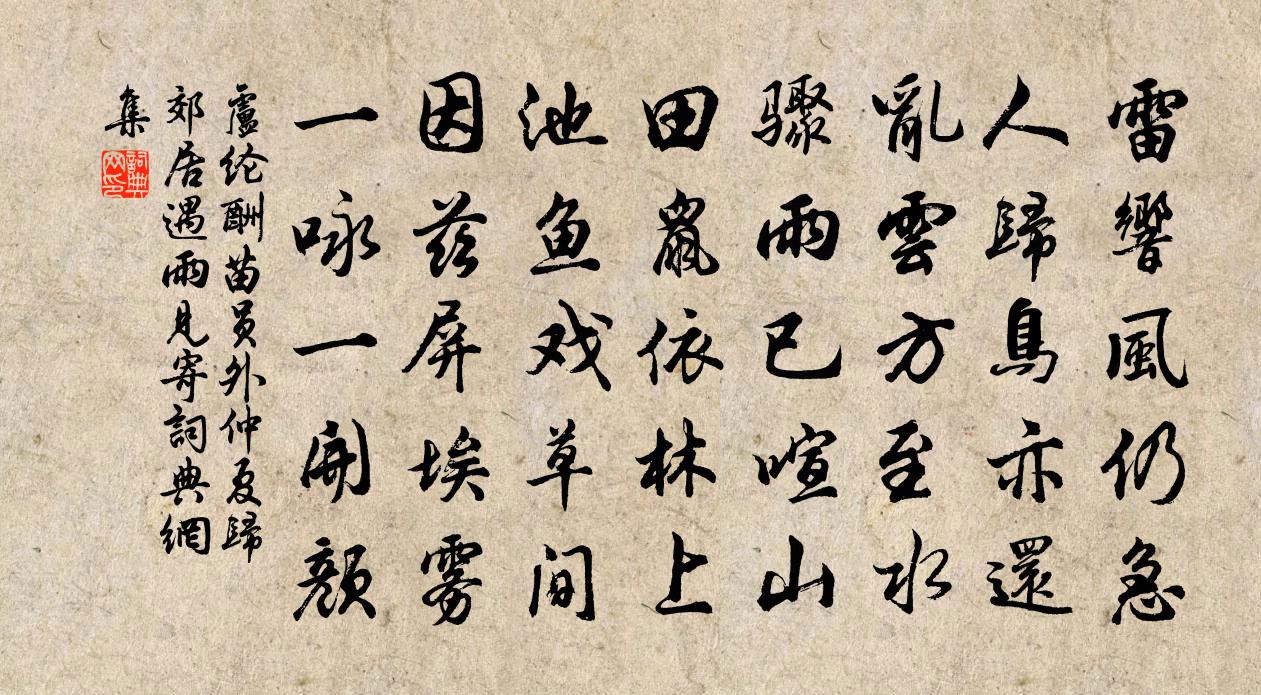 雷響風仍急
人歸鳥亦還
亂雲方至水
骤雨已喧山
田鼠依林上
池鱼戏草間
因兹屏埃雾
一咏一開顏
盧纶酬苗員外仲夏歸
郊居遇雨見寄詞典網
集
詞典
网印